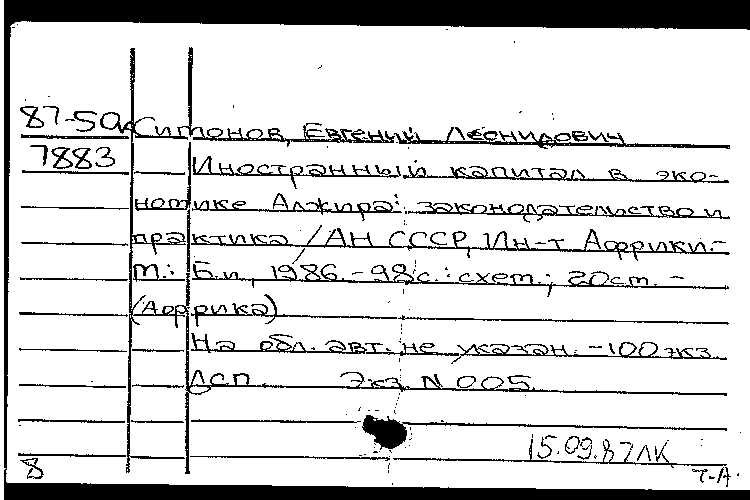 87-5а Симонов, Евгений Леонидович
7883 Иностранный капитал в эко-
номике Алжира: законодательство и
практика / АН СССР, Ин-т Африки.-
М.: Б.и., 1986.-98с.: схем.; 20см. -
(Африка)
На обл. авт. не указан. -100 экз.
ДСП. Экз. N 005.
15.09.87 ЛК
8 Т-А.